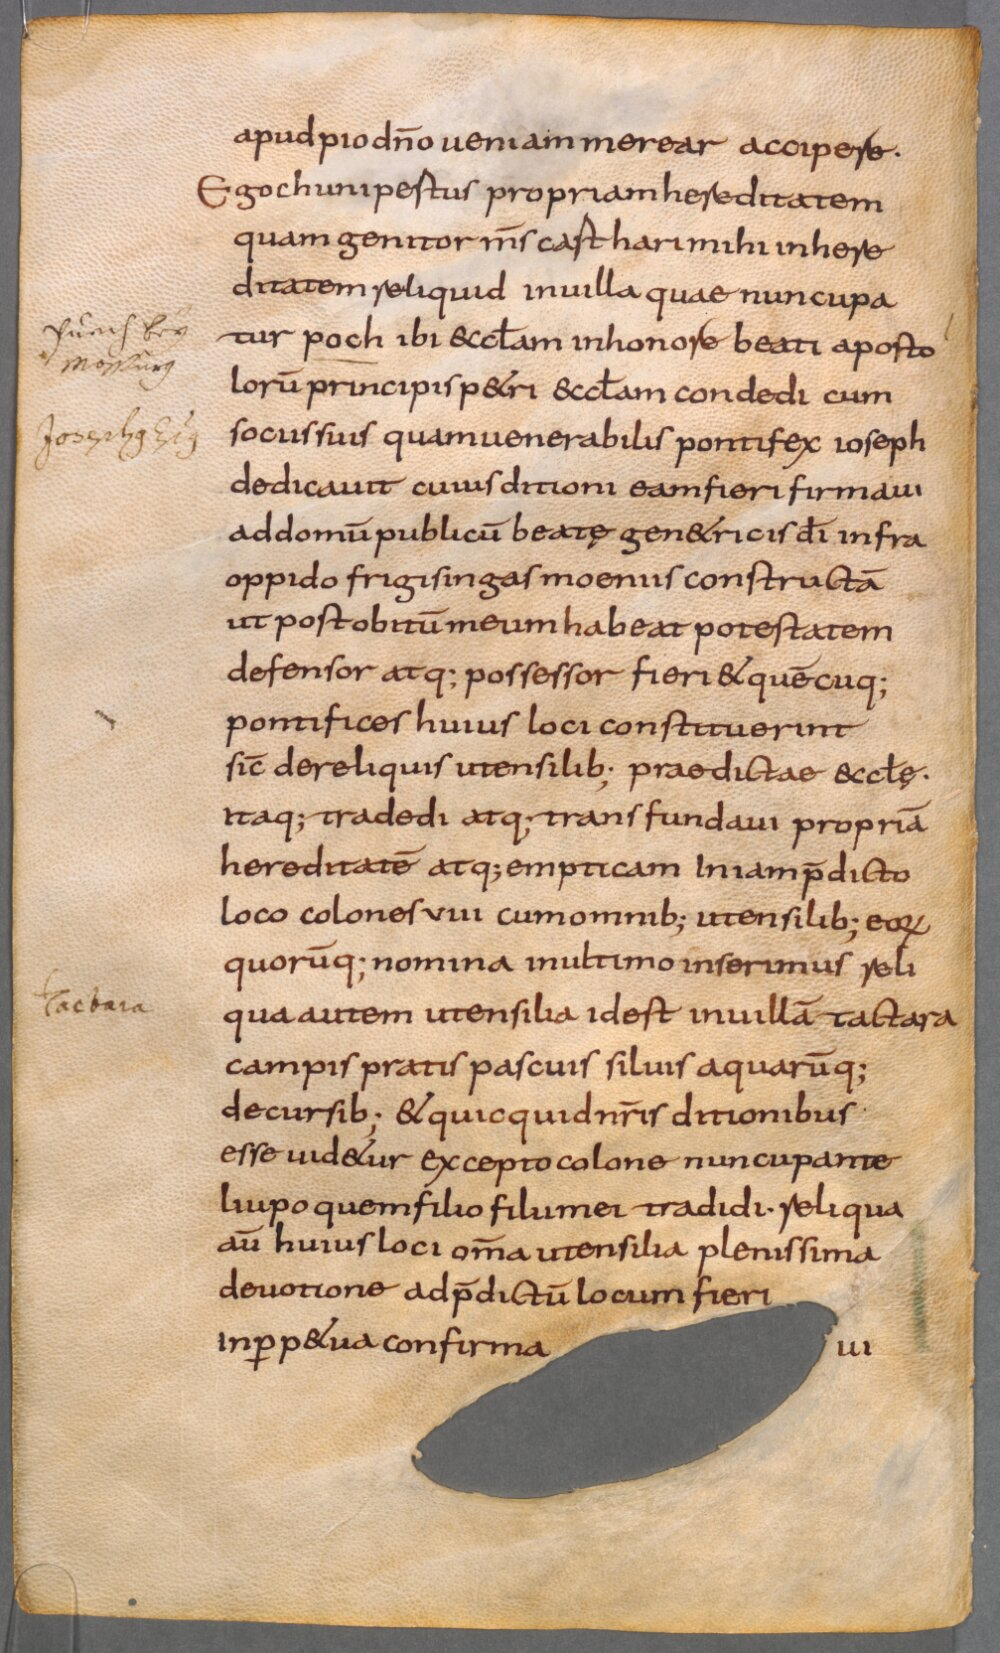 apud pio dn̄o ueniam merear accipere.
Ego chunipestus propriam hereditatem
quam genitor m̄s casthari mihi in here
ditatem reliquid in uilla quae nuncupa
tur poch ibi & eccl̄am in honore beati aposto
lorū principis p&ri & eccl̄am condedi cum
sociis suis quam uenerabilis pontifex ioseph
dedicauit cuius ditioni eam fieri firmaui
ad domū publicū beatę gen&ricis dī infra
oppido frigisingas moeniis constructā
ut post obitū meum habeat potestatem
defensor atq; possessor fieri & quēcuq;
pontifices huius loci constituerint
sic̄ de reliquis utensilib; praedictae eccl̄ę.
itaq; tradedi atq; transfundaui propriā
hereditatē atq; empticam In iam p̄dicto
loco colones viii cum omnib; utensilib; eoꝝ
quorūq; nomina in ultimo inserimus reli
qua autem utensilia id est in uillā tactara
campis pratis pascuis siluis aquarūq;
decursib; & quicquid nr̄is ditionibus
esse uid&ur excepto colone nuncupante
liupo quem filio filii mei tradidi. reliqua
aū huius loci om̄a utensilia plenissima
deuotione ad p̄dictū locum fieri
in ꝑp&ua confirma ui
tactara